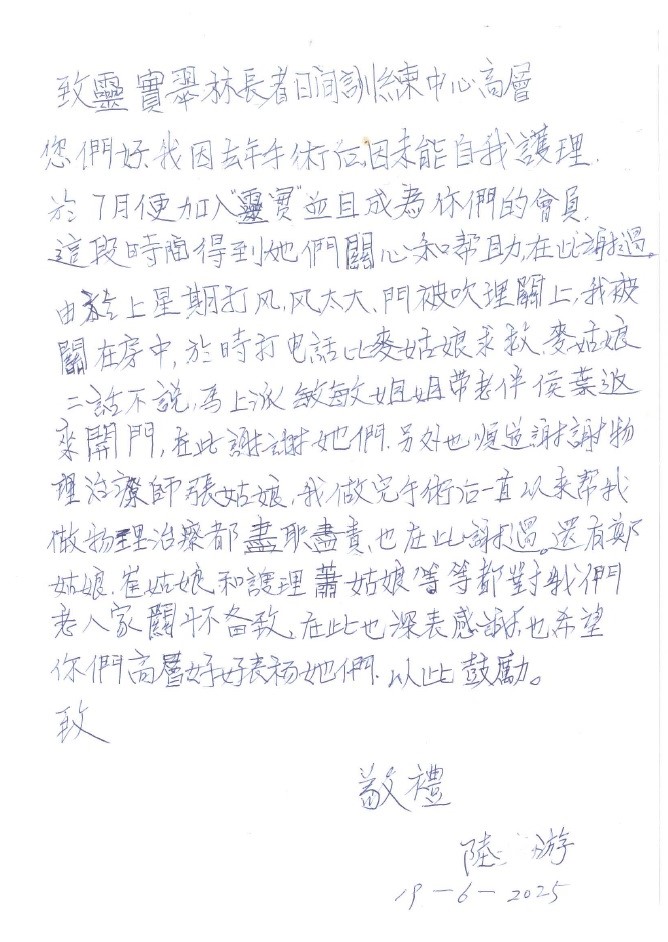 致靈實翠林長者日间訓練中心高層
您們好、我因去年手術后、因未能自我護理、
於7月便加入"靈實"並且成為你們的會員、
這段時间得到她們關心和帮助、在此謝過。
由於上星期打风、风太大、門被吹理關上、我被
關在房中、於時打电話比麥姑娘求救、麥姑娘
二話不说、馬上派敏敏姐姐带老伴侯葉返
來開門、在此謝謝她們、另外也順道謝謝物
理治療師張姑娘、我做完手術后一直以來帮我
做物理治療都盡耶盡責、也在此謝過。還有鄭
姑娘、崔姑娘和護理蕭姑娘等等都對我們
老人家關怀备致、在此也深表感謝、也希望
你們高層好好表扬她們、以此鼓勵。
致
敬禮
陸 游
19-6-2025